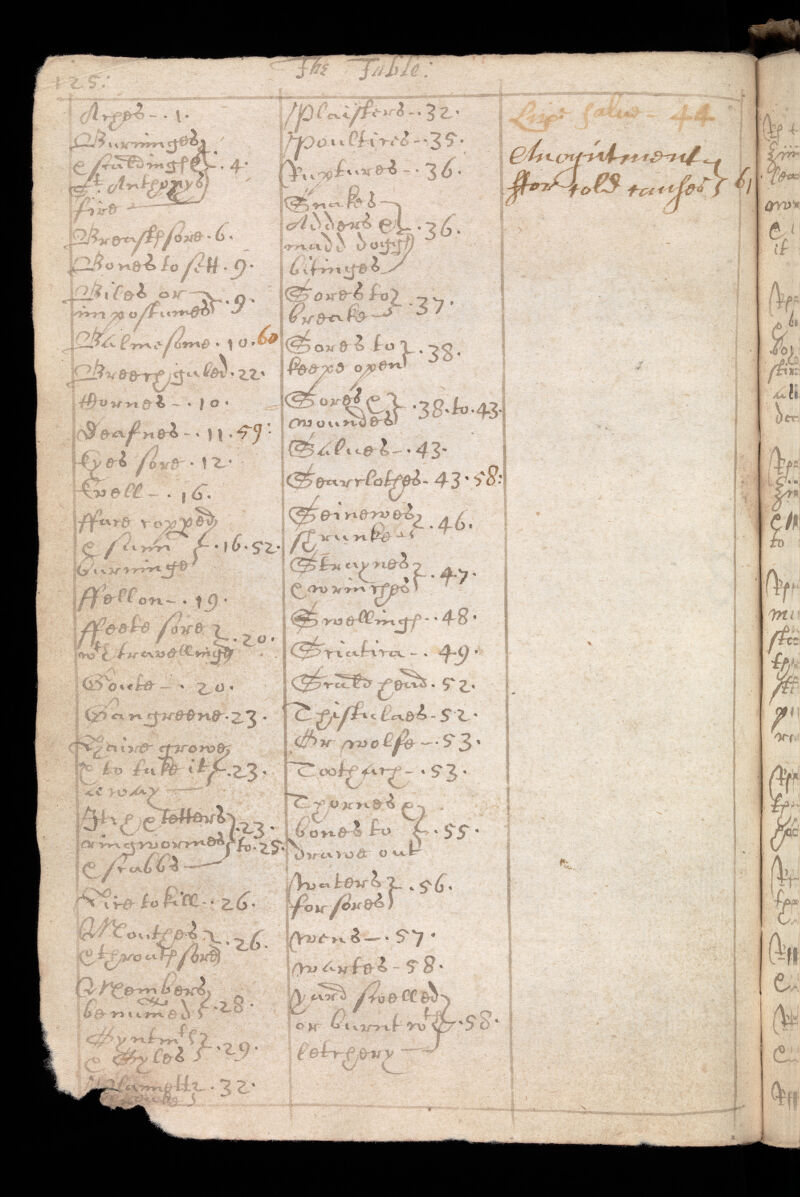 125:
The Table:
Aches - . 1 .
Burninges
& scaldinghs . 4 .
St. Anthonys
fire
Breasts sore . 6 .
Bones to sett . 9 .
Biles or
impostumes . 9 .
Balmesome . 10 . 60
Breech galed . 22 .
Cornes - . 10 .
Deafnes - . 11 . 59 :
Eyes sore . 12 .
Evell - . 16 .
fface copped
& sunn . 16 . 52 .
burninge
ffellon - . 19 .
ffeete sore
wth travellinge . 20 .
Goute - . 20 .
Gangreene . 23 .
Haire growe
& to take it . 23 .
away
Itch & tetters . 23 .
ringwormes to . 25 .
& scabbs
Lice to kill . 26 .
Mouthes
& throath sore . 26 .
Members
benumed . 28 .
Oyntmts
& Oyles . 29 .
Plannett . 32 .
Plaisters - . 32 .
Poultices - . 35 .
Ruptures - . 36 .
Snakes
Adders & . 36 .
madd doggs
bitinges
Sores to
breake . 37 .
Sores to
keepe open . 38 .
Sores &
woundes . 38 . to . 43 .
Salves - . 43 .
Searclothes - 43 . 58 :
Seinewes
shrunke . 46 .
Straynes
& wrinches . 47 .
Swellings - . 48 .
Sciatica - . 49 .
Scald head . 52 .
Thistulaes - 52 .
Or wolfe - . 53 .
Toothach - . 53 .
Thornes &
bones to . 55 .
drawe out
Waters
for sores . 56 .
Wens - . 57 .
Wartes - 58 .
Yard swelled
or burnt wth . 58 .
letchery
Lipe salve - 44
An oyntment
ffor cold causes 61